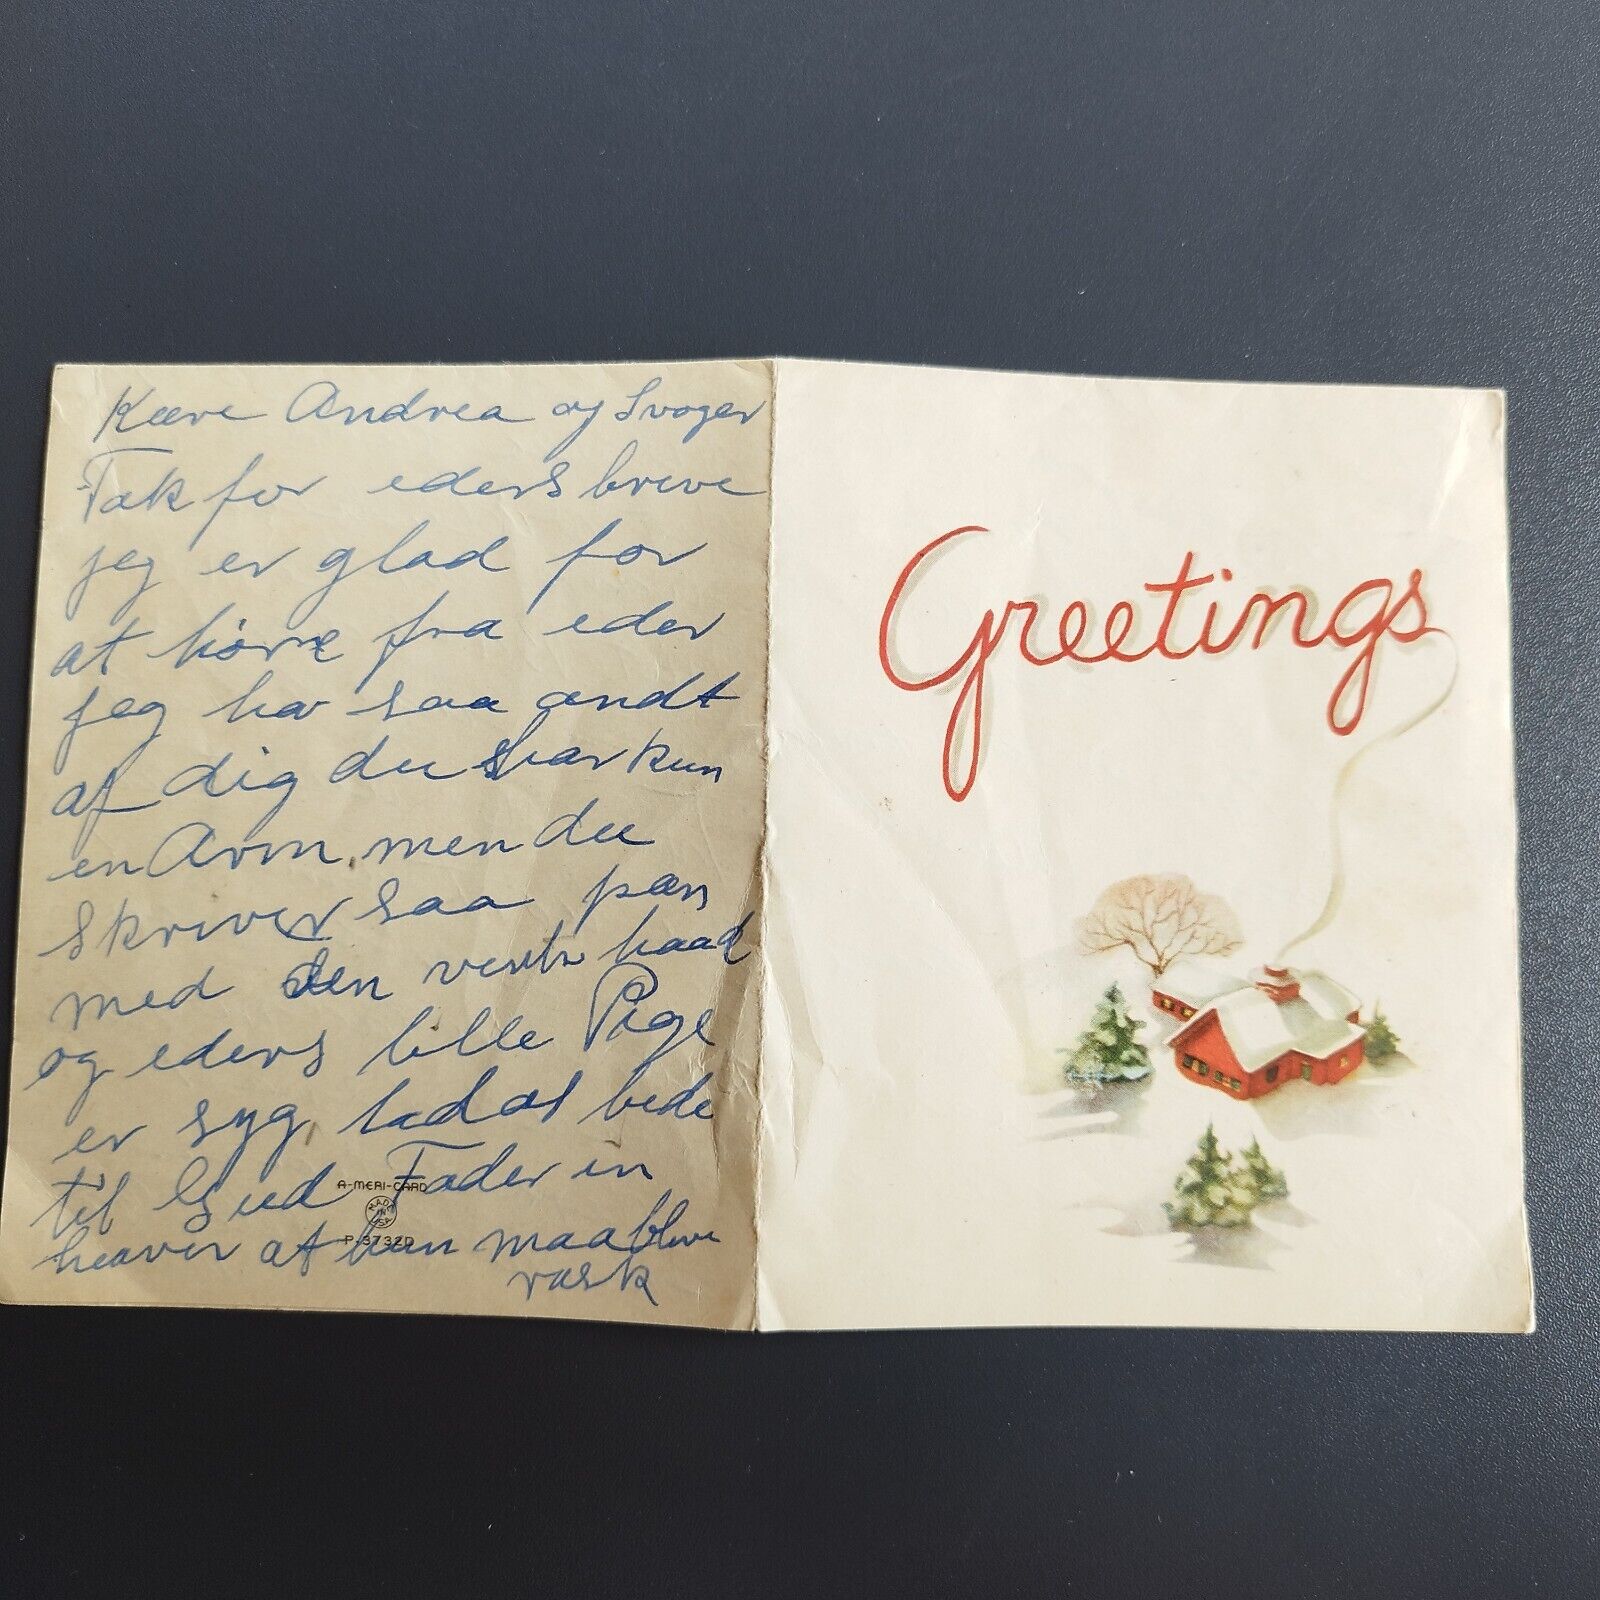 Kære Andrea og Svoger
Tak for eders breve
jeg er glad for
at høre fra eder
jeg har saa ondt
af dig du har kun
en Arm, men du
skriver saa pæn
med den venstr haad
og eders lille Pige
er syg, lad os bede
til Gud Fader in
heaven at hun maa blive
rask
A-MERI-CARD
MADE IN USA
P-3732D
Greetings